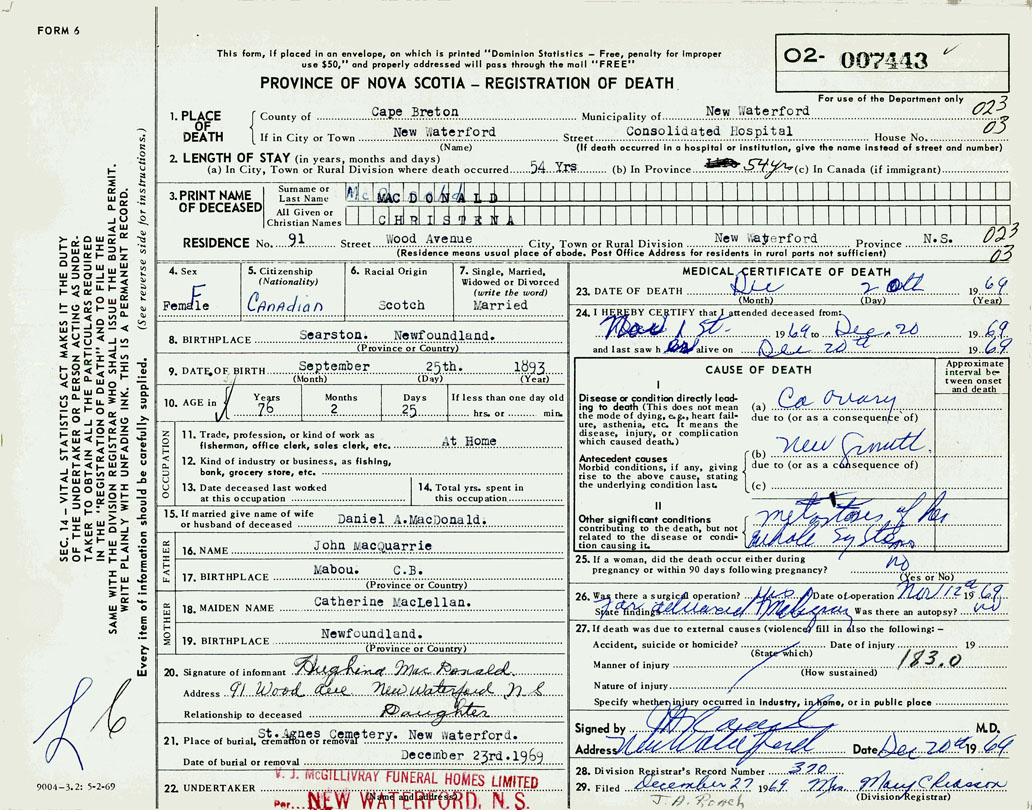 FORM 6
This form, if placed in an envelope, on which is printed "Dominion Statistics – Free, penalty for improper
use $50," and properly addressed will pass through the mail "FREE"
PROVINCE OF NOVA SCOTIA – REGISTRATION OF DEATH
02- 007443
For use of the Department only
023
03
SEC. 14 – VITAL STATISTICS ACT MAKES IT THE DUTY
OF THE UNDERTAKER OR PERSON ACTING AS UNDER-
TAKER TO OBTAIN ALL THE PARTICULARS REQUIRED
IN THE "REGISTRATION OF DEATH" AND TO FILE THE
SAME WITH THE DIVISION REGISTRAR WHO SHALL ISSUE THE BURIAL PERMIT.
WRITE PLAINLY WITH UNFADING INK. THIS IS A PERMANENT RECORD.
Every item of information should be carefully supplied. (See reverse side for instructions.)
1. PLACE OF DEATH
County of Cape Breton Municipality of New Waterford
If in City or Town New Waterford Street Consolidated Hospital House No.
(Name) (If death occurred in a hospital or institution, give the name instead of street and number)
2. LENGTH OF STAY (in years, months and days)
(a) In City, Town or Rural Division where death occurred 54 Yrs (b) In Province 54 yr (c) In Canada (if immigrant)
3. PRINT NAME OF DECEASED
Surname or Last Name MAC DONALD
All Given or Christian Names CHRISTENA
RESIDENCE No. 91 Street Wood Avenue City, Town or Rural Division New Waterford Province N.S. 023
(Residence means usual place of abode. Post Office Address for residents in rural parts not sufficient) 03
4. Sex F Female
5. Citizenship (Nationality) CANADIAN
6. Racial Origin Scotch
7. Single, Married, Widowed or Divorced (write the word) Married
8. BIRTHPLACE Searston. Newfoundland.
(Province or Country)
9. DATE OF BIRTH September 25th. 1893
(Month) (Day) (Year)
10. AGE in Years 76 Months 2 Days 25 If less than one day old hrs. or min.
OCCUPATION
11. Trade, profession, or kind of work as fisherman, office clerk, sales clerk, etc. At Home
12. Kind of industry or business, as fishing, bank, grocery store, etc.
13. Date deceased last worked at this occupation
14. Total yrs. spent in this occupation
15. If married give name of wife or husband of deceased Daniel A.MacDonald.
FATHER
16. NAME John MacQuarrie
17. BIRTHPLACE Mabou. C.B.
(Province or Country)
MOTHER
18. MAIDEN NAME Catherine MacLellan.
19. BIRTHPLACE Newfoundland.
(Province or Country)
20. Signature of informant Hughina MacDonald
Address 91 Wood Ave New Waterford N S
Relationship to deceased Daughter
21. Place of burial, cremation or removal St.Agnes Cemetery. New Waterford.
Date of burial or removal December 23rd.1969
22. UNDERTAKER V. J. McGILLIVRAY FUNERAL HOMES LIMITED
(Name and address)
Per NEW WATERFORD, N. S.
9004–3.2: 5-2-69
MEDICAL CERTIFICATE OF DEATH
23. DATE OF DEATH Dec 20th 1969
(Month) (Day) (Year)
24. I HEREBY CERTIFY that I attended deceased from:
Nov 1st. 1969 to Dec. 20 1969
and last saw her alive on Dec 20th 1969
CAUSE OF DEATH
Approximate interval between onset and death
I
Disease or condition directly leading to death (This does not mean the mode of dying, e.g., heart failure, asthenia, etc. It means the disease, injury, or complication which caused death.)
(a) Ca Ovary
due to (or as a consequence of)
Antecedent causes
Morbid conditions, if any, giving rise to the above cause, stating the underlying condition last.
(b) New Growth.
due to (or as a consequence of)
(c)
II
Other significant conditions contributing to the death, but not related to the disease or condition causing it.
metastases of her
whole system
25. If a woman, did the death occur either during
pregnancy or within 90 days following pregnancy? no
(Yes or No)
26. Was there a surgical operation? Yes Date of operation Nov 12th 1969
State findings far advanced Malignancy Was there an autopsy? no
27. If death was due to external causes (violence) fill in also the following: –
Accident, suicide or homicide? Date of injury 19
(State which)
Manner of injury 183.0
(How sustained)
Nature of injury
Specify whether injury occurred in industry, in home, or in public place
Signed by M.D.
Address New Waterford Date Dec 20th 1969
28. Division Registrar's Record Number 370
29. Filed December 27 1969 Mrs. Mary Chiasson
(Division Registrar)
J. A. Roach